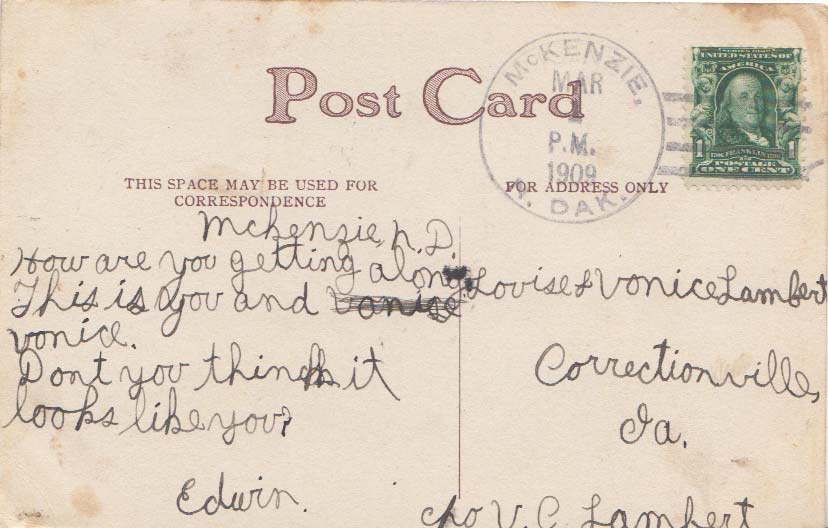 Post Card
McKENZIE,
MAR
1
P.M.
1909
N. DAK.
SERIES 1902
UNITED STATES OF
AMERICA
1 FRANKLIN 1
POSTAGE
ONE CENT
THIS SPACE MAY BE USED FOR
CORRESPONDENCE
FOR ADDRESS ONLY
Mckenzie, N. D.
How are you getting along.
This is you and Vonice
vonice.
Dont you think it
looks like you?
Edwin.
Lovise & Vonice Lambert
Correctionville,
Ia.
c/o V. C. Lambert